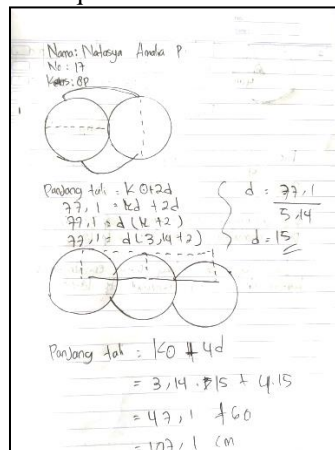 Nama: Natasya Amalia P.
No : 17
Kelas: 8P
Panjang tali = K O+2d
77,1 = πd +2d
77,1 = d (π+2)
77,1 = d(3,14+2)
d = 77,1
5,14
d = 15
Panjang tali : KO + 4d
= 3,14 . 15 + 4.15
= 47,1 + 60
= 107,1 cm